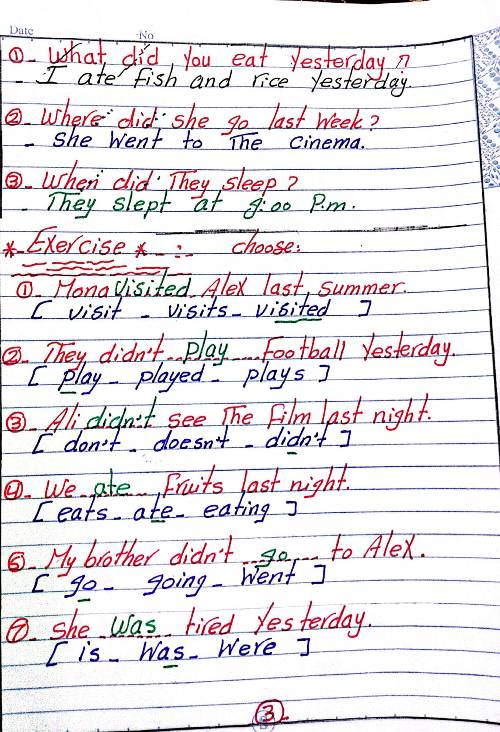 Date
No
①- What did you eat yesterday?
- I ate fish and rice yesterday.
②- Where did she go last week?
- She went to The cinema.
③- When did They sleep?
- They slept at 9:00 P.m.
*- Exercise *- :- choose:
①- Mona visited Alex last summer.
[ visit - visits - visited ]
②- They didn't play Football yesterday.
[ play - played - plays ]
③- Ali didn't see The film last night.
[ don't - doesn't - didn't ]
④- We ate Fruits last night.
[ eats - ate - eating ]
⑤- My brother didn't go to Alex.
[ go - going - went ]
⑦- She was tired yesterday.
[ is - was - were ]
3